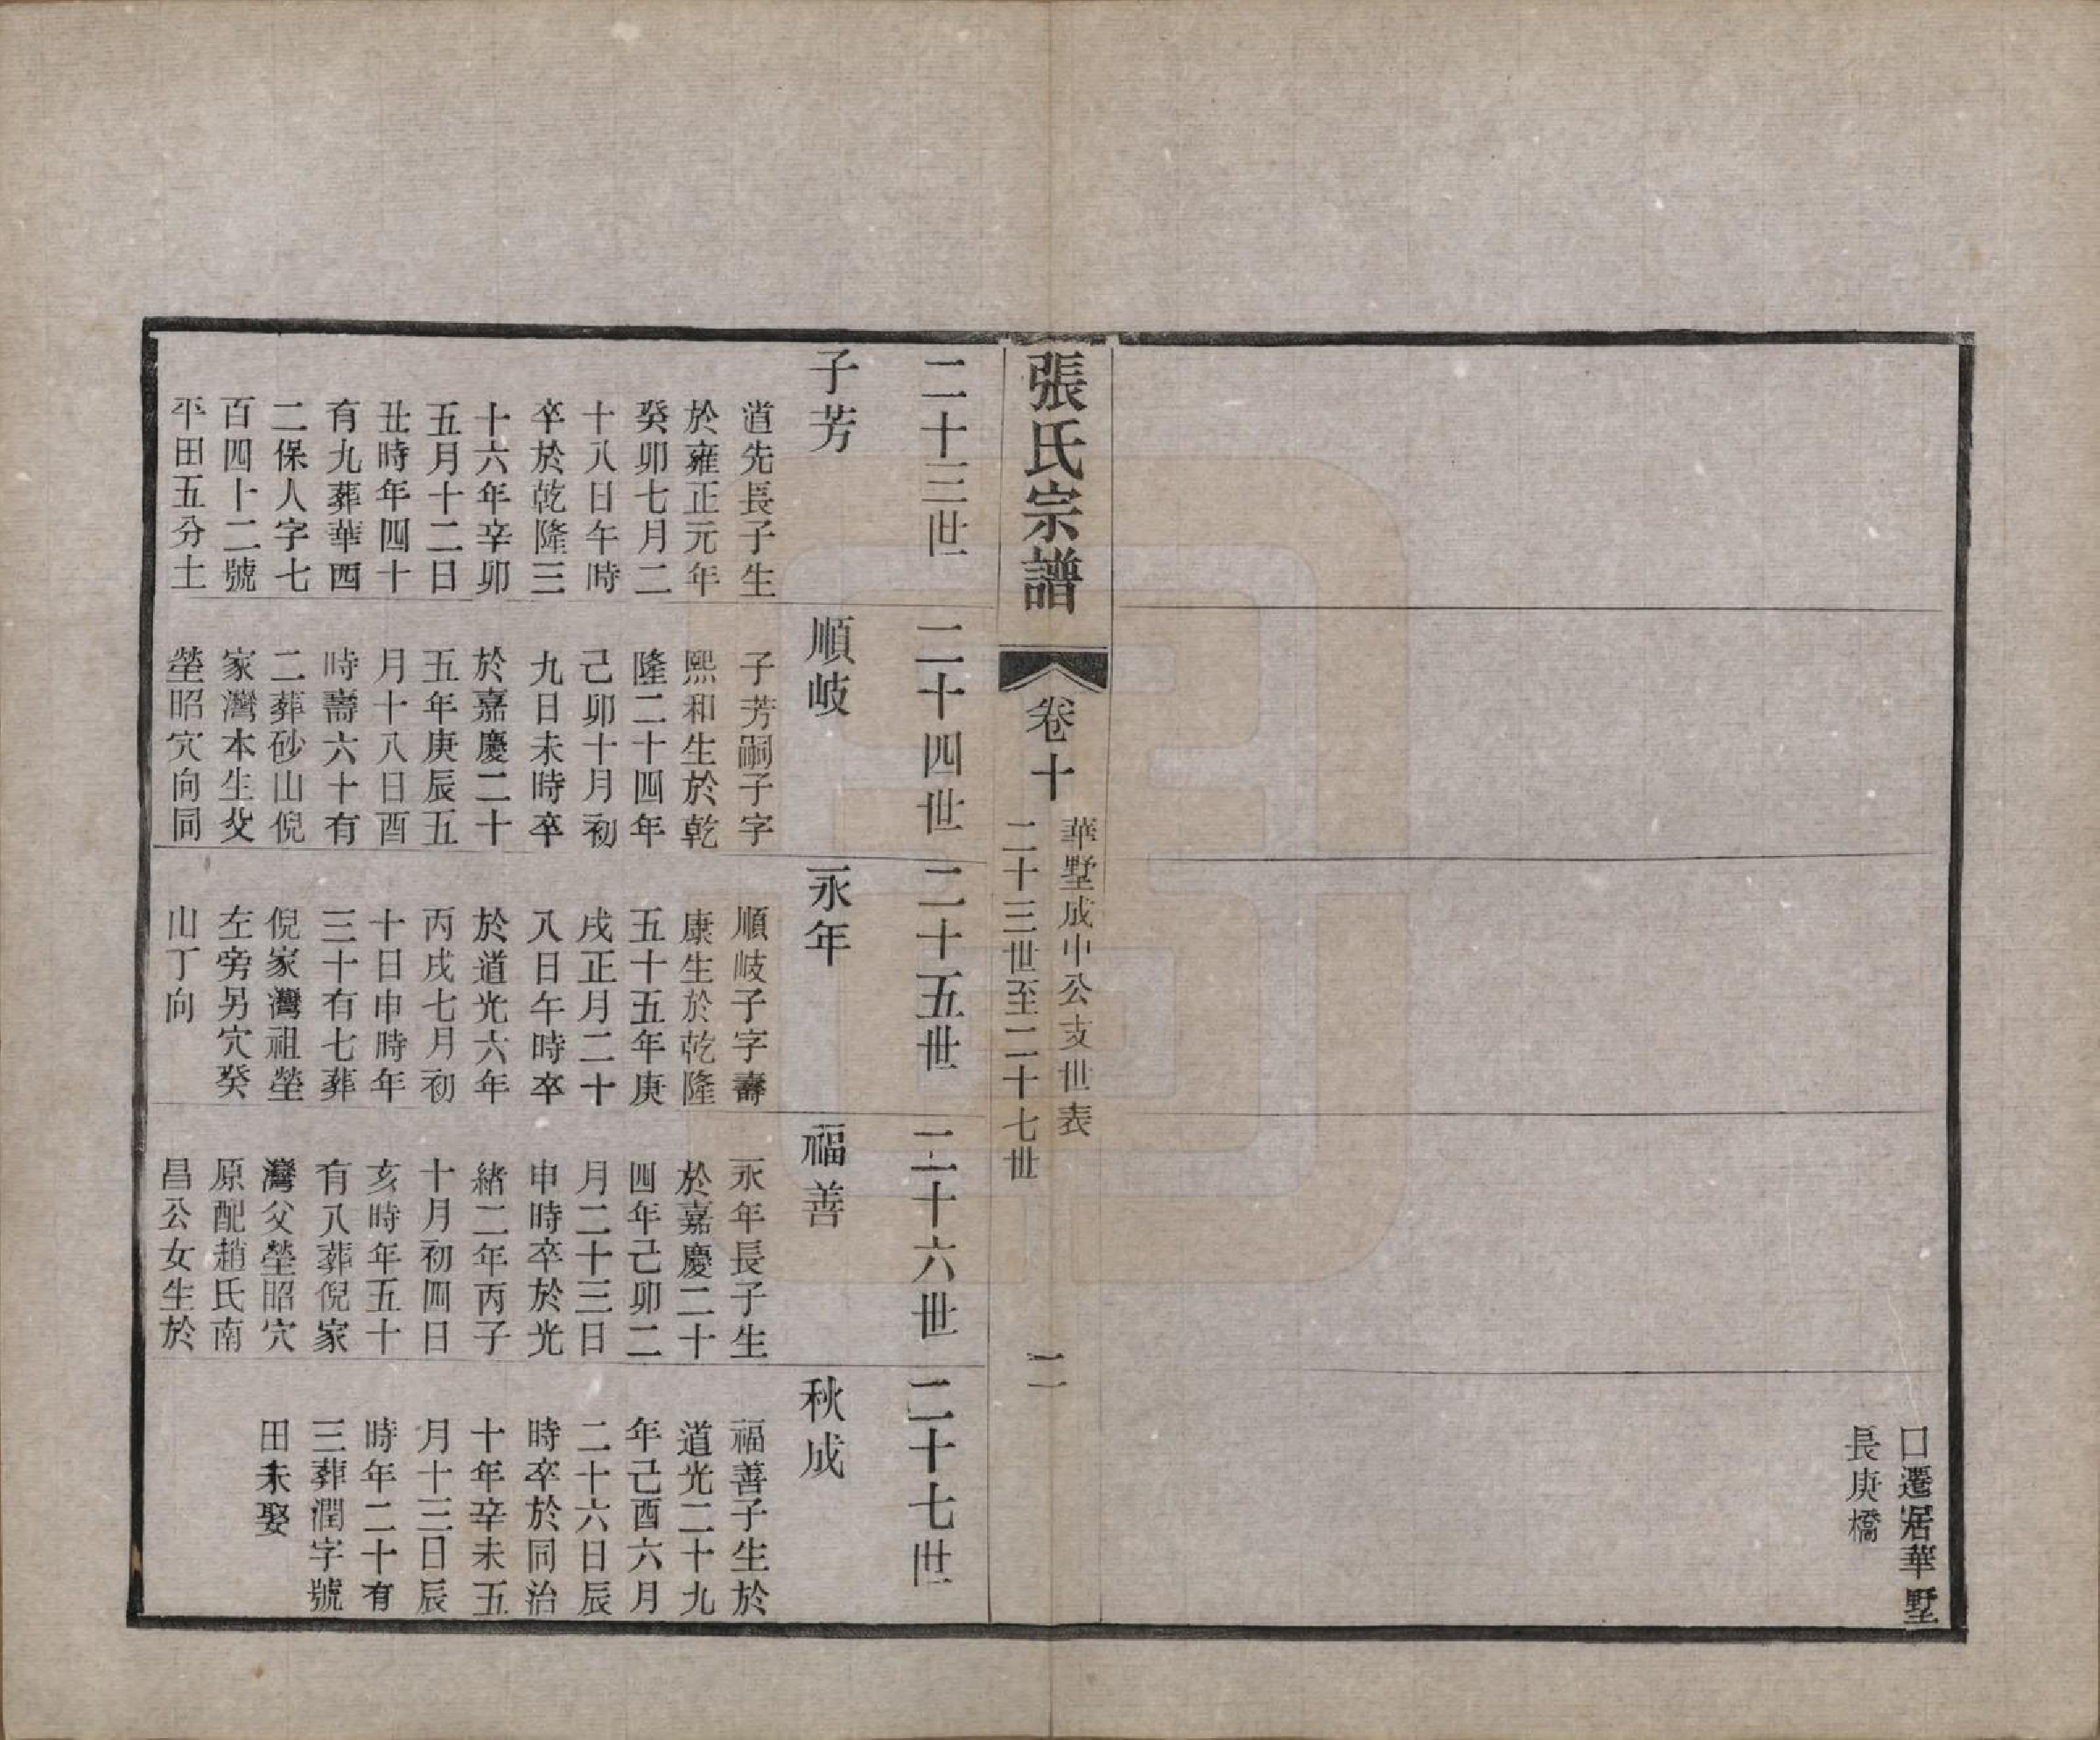 口遷居華墅
長庚橋
張氏宗譜
卷十
華墅成中公支世表
二十三世至二十七世
二
二十三世
子芳
道先長子生
於雍正元年
癸卯七月二
十八日午時
卒於乾隆三
十六年辛卯
五月十二日
丑時年四十
有九葬華西
二保人字七
百四十二號
平田五分土
二十四世
順岐
子芳嗣子字
熙和生於乾
隆二十四年
己卯十月初
九日未時卒
於嘉慶二十
五年庚辰五
月十八日酉
時壽六十有
二葬砂山倪
家灣本生父
塋昭穴向同
二十五世
永年
順岐子字壽
康生於乾隆
五十五年庚
戌正月二十
八日午時卒
於道光六年
丙戌七月初
十日申時年
三十有七葬
倪家灣祖塋
左旁另穴癸
山丁向
二十六世
福善
永年長子生
於嘉慶二十
四年己卯二
月二十三日
申時卒於光
緒二年丙子
十月初四日
亥時年五十
有八葬倪家
灣父塋昭穴
原配趙氏南
昌公女生於
二十七世
秋成
福善子生於
道光二十九
年己酉六月
二十六日辰
時卒於同治
十年辛未五
月十三日辰
時年二十有
三葬潤字號
田未娶